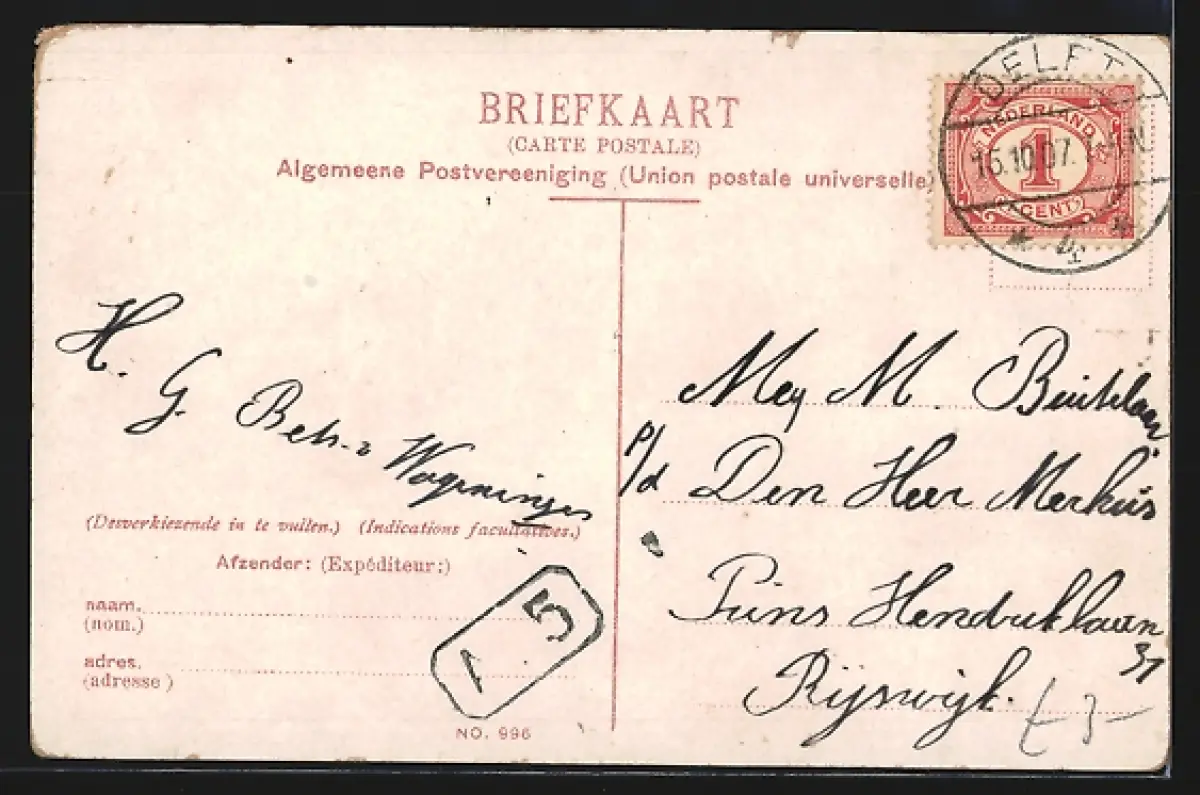 BRIEFKAART
(CARTE POSTALE)
Algemeene Postvereeniging (Union postale universelle)
DELFT
NEDERLAND
16.10.07. N
1
CENT
H. G. Wageningen
(Desverkiezende in te vullen.) (Indications facultatives.)
Afzender: (Expéditeur:)
naam.
(nom.)
adres.
(adresse)
1 5
NO. 996
Mej M.
p/d Den Heer Merkus
Prins Hendriklaan
31
Rijswijk.